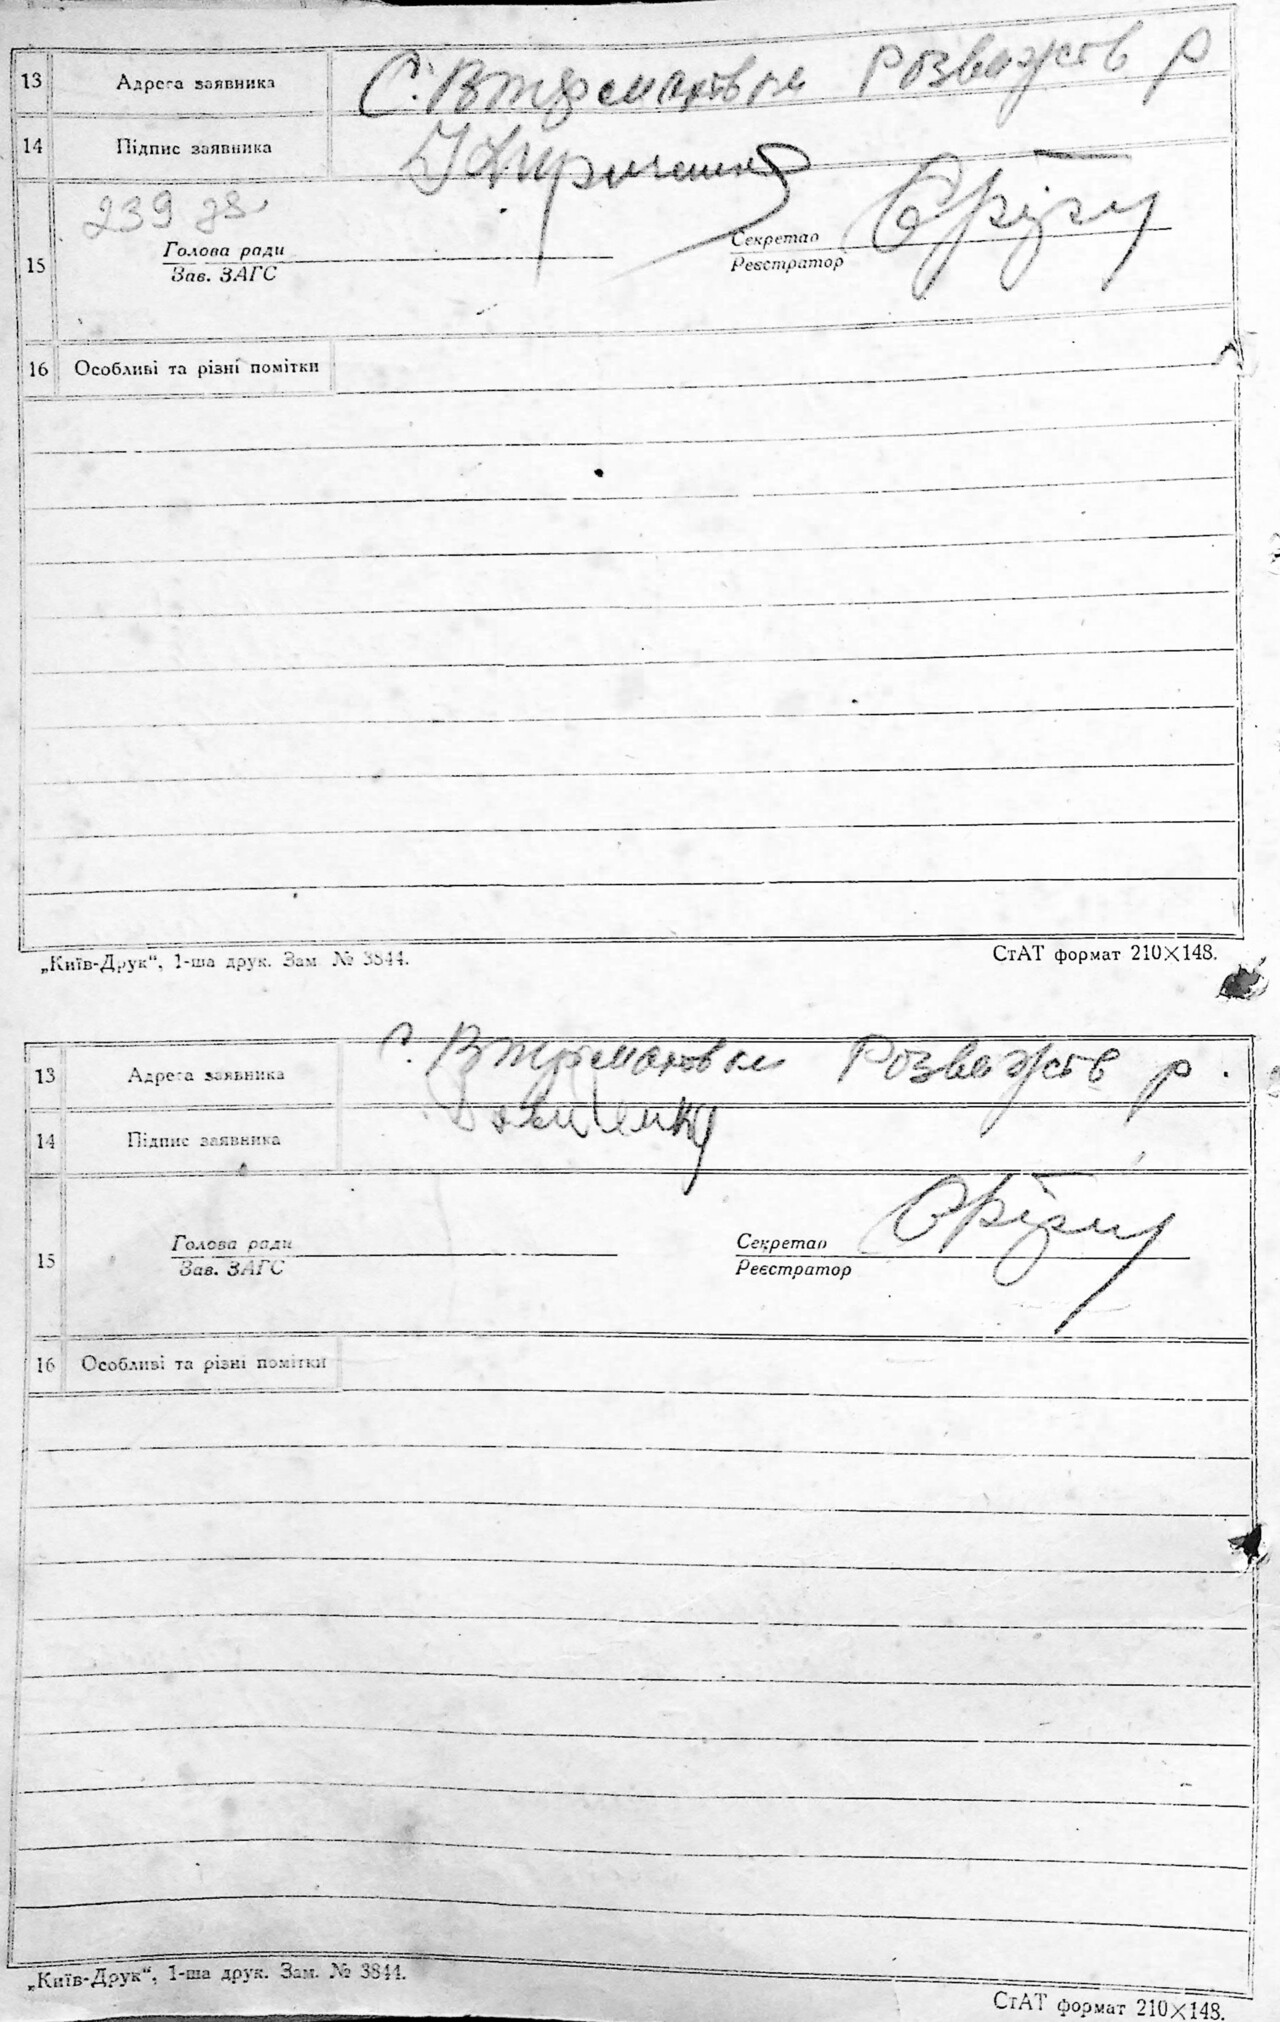 13 Адреса заявника С. Розважів р
14 Підпис заявника
239 дз.
15 Голова ради Секретар
Зав. ЗАГС Реєстратор
16 Особливі та різні помітки
„Київ-Друк“, 1-ша друк. Зам № 3844. СтАТ формат 210×148.
13 Адреса заявника с. Розважів р.
14 Підпис заявника
15 Голова ради Секретар
Зав. ЗАГС Реєстратор
16 Особливі та різні помітки
„Київ-Друк“, 1-ша друк. Зам. № 3844.
СтАТ формат 210×148.